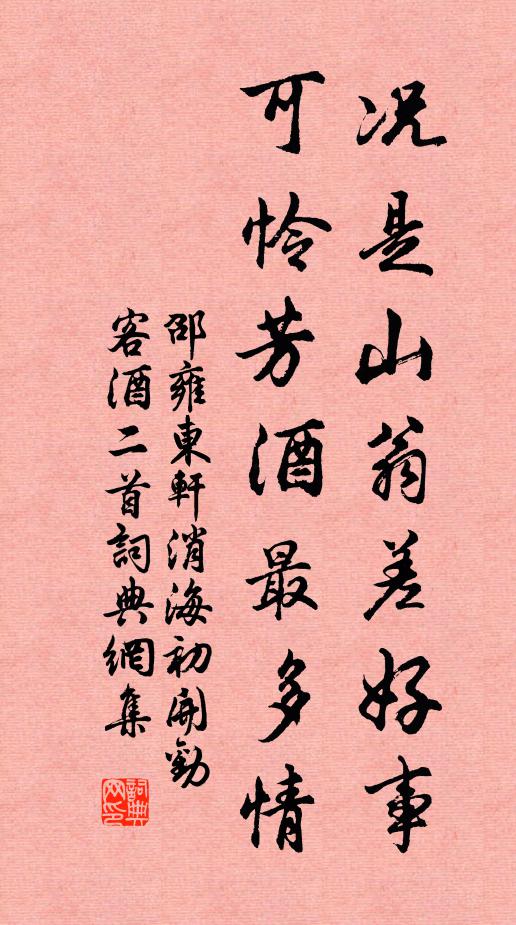 况是山翁差好事
可怜芳酒最多情
邵雍東軒消海初開勸
客酒二首詞典網集
詞典網印